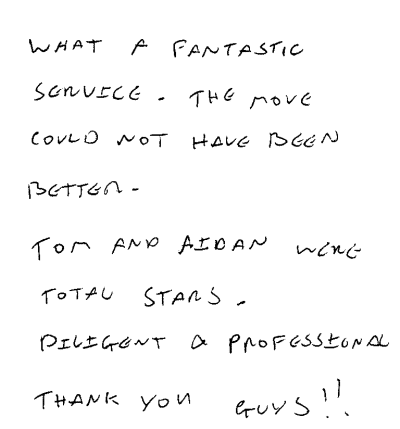 WHAT A FANTASTIC
SERVICE. THE MOVE
COULD NOT HAVE BEEN
BETTER.
TOM AND AIDAN WERE
TOTAL STARS.
DILIGENT & PROFESSIONAL
THANK YOU GUYS!!